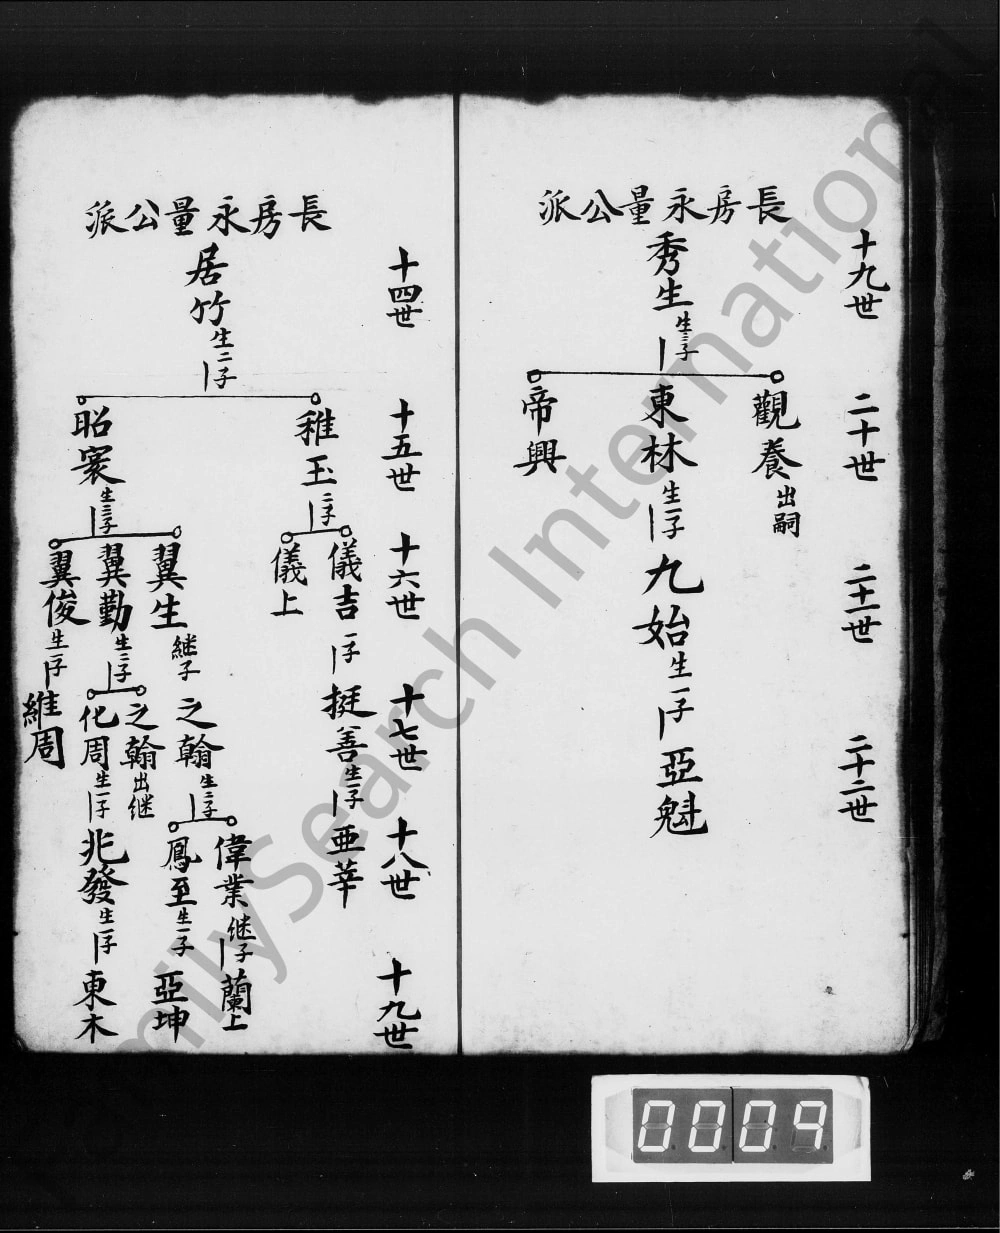 長房永量公派
十九世
秀生
生三子
二十世
觀養
出嗣
東林
生一子
帝興
二十一世
九始
生一子
二十二世
亞魁
長房永量公派
十四世
居竹
生二子
十五世
稚玉
二子
昭寰
生三子
十六世
儀吉
一子
儀上
翼生
継子
翼勤
生二子
翼俊
生一子
十七世
挺善
生一子
之翰
生二子
之翰
出継
化周
生一子
維周
十八世
亜華
偉業
継子
鳳至
生一子
兆發
生一子
十九世
蘭上
亞坤
東木
0009
FamilySearch International